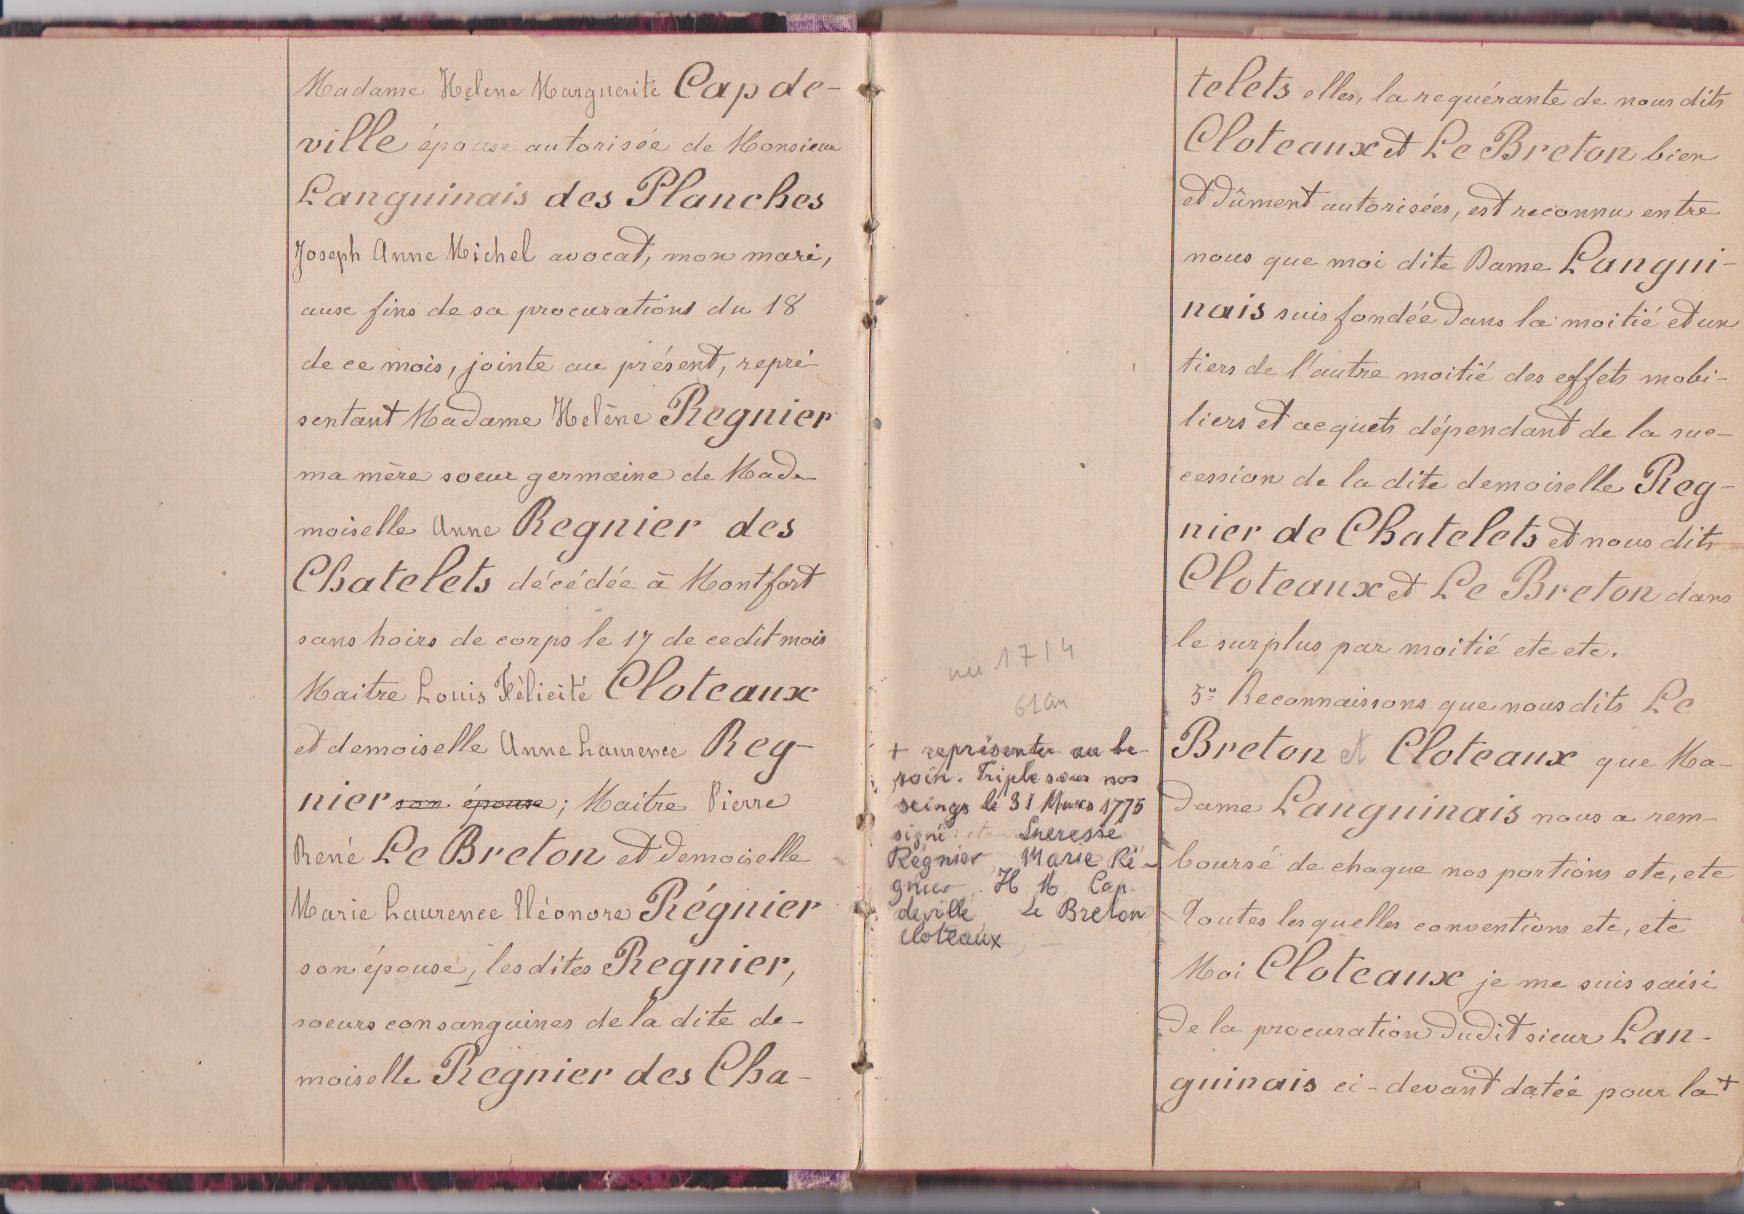 Madame Helene Marguerite Capde-
ville épouse autorisée de Monsieur
Languinais des Planches
Joseph Anne Michel avocat, mon mari,
aux fins de sa procurations du 18
de ce mois, jointe au présent, repré-
sentant Madame Helène Regnier
ma mère soeur germaine de Made-
moiselle Anne Regnier des
Chatelets décédée à Montfort
sans hoirs de corps le 17 de cedit mois
Maitre Louis Félicité Cloteaux
et demoiselle Anne Laurence Reg-
nier son épouse; Maitre Pierre
René Le Breton et demoiselle
Marie Laurence Eléonore Régnier
son épouse, lesdites Regnier,
soeurs consanguines de la dite de-
moiselle Regnier des Cha-
telets elles, la requérante de nous dits
Cloteaux et Le Breton bien
et dûment autorisées, est reconnu entre
nous que moi dite Dame Langui-
nais suis fondée dans la moitié et un
tiers de l'autre moitié des effets mobi-
liers et acquets dépendant de la suc-
cession de la dite demoiselle Reg-
nier de Chatelets et nous dits
Cloteaux et Le Breton dans
le surplus par moitié etc etc.
5º Reconnaissons que nous dits Le
Breton et Cloteaux que Ma-
dame Languinais nous a rem-
boursé de chaque nos portions etc, etc
Toutes lesquelles conventions etc, etc
Moi Cloteaux je me suis saisi
de la procuration dudit sieur Lan-
guinais ci-devant datée pour la +
1714
61 an
+ représenter au be-
soin. Triple sous nos
seings le 31 Mars 1775
signé
Régnier Marie Ré-
gnier H M Cap-
deville Le Breton
Cloteaux